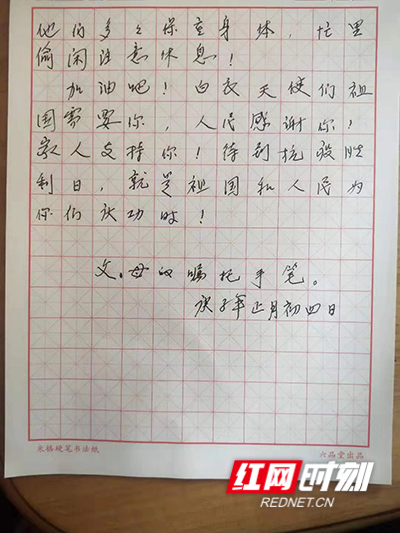 他们多多保重身体，忙里
偷闲注意休息！
加油吧！白衣天使们祖
国需要你，人民感谢你！
家人支持你！待到抗疫胜
利日，就是祖国和人民为
你们庆功时！
父、母的嘱托手笔。
庚子年正月初四日
米格硬笔书法纸
六品堂出品
红网时刻
REDNET.CN